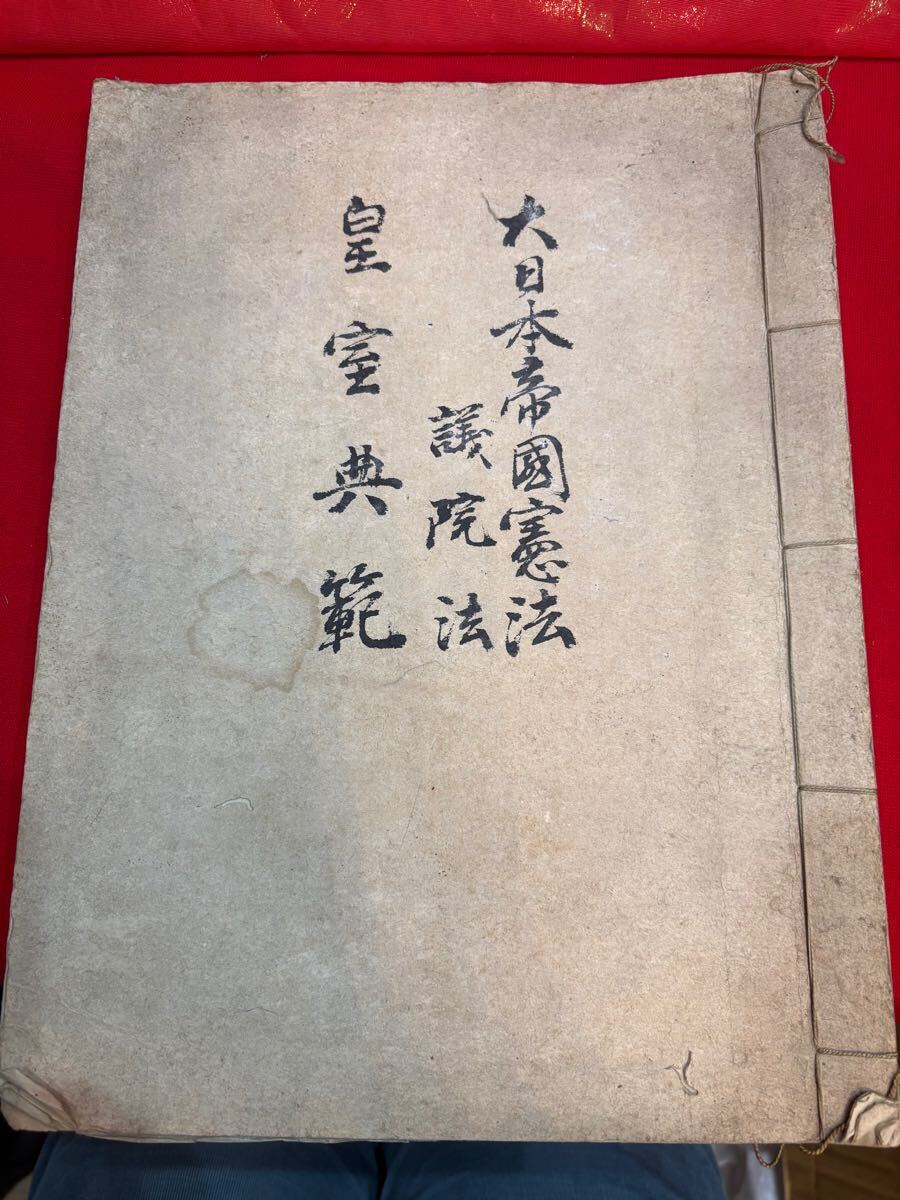 大日本帝國憲法
議院法
皇室典範